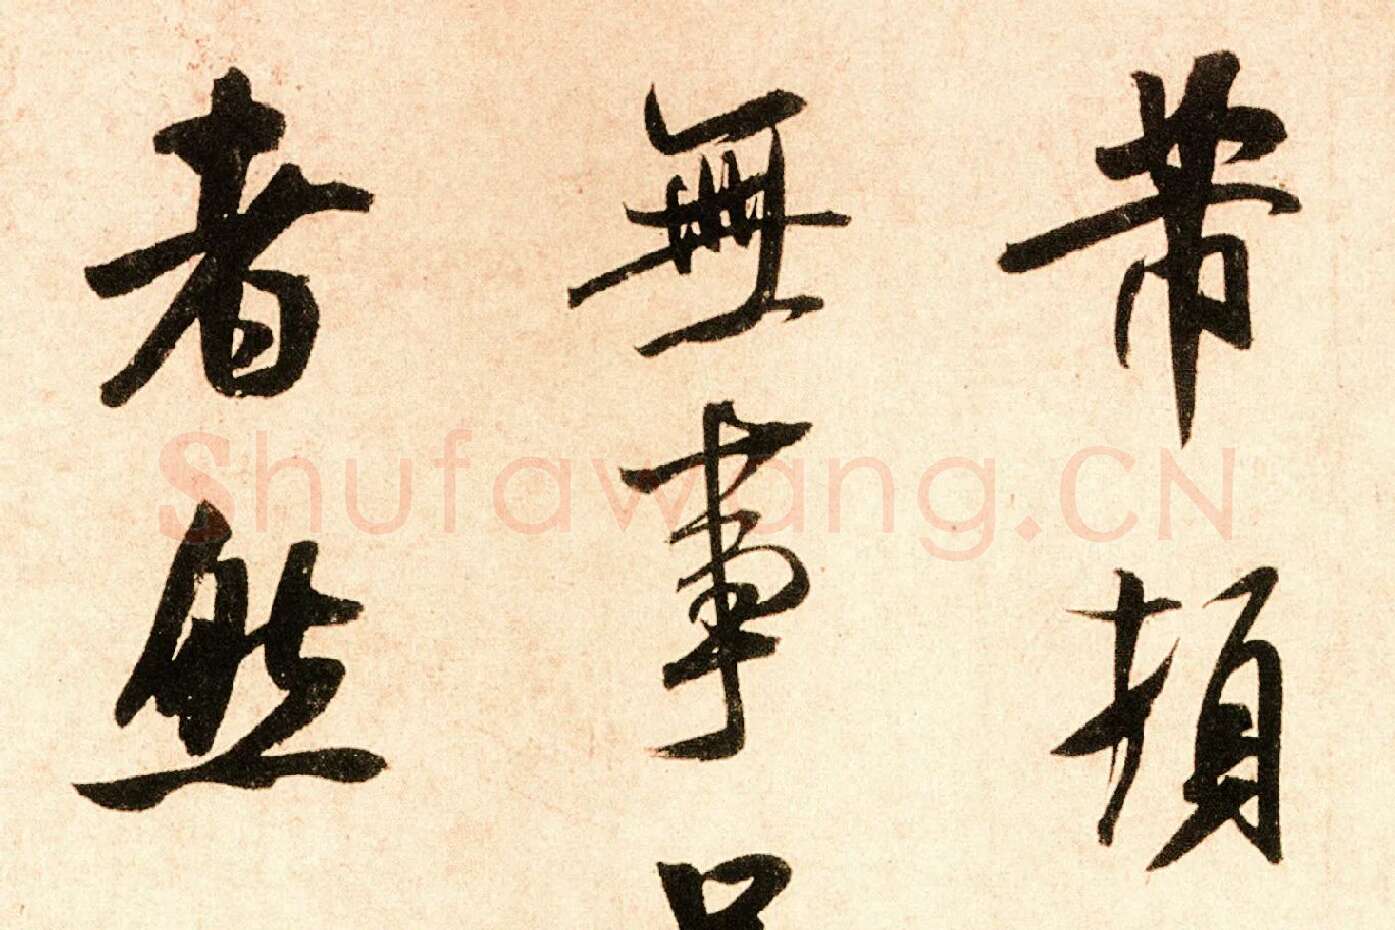 帶
無事
者然
Shufawang.CN